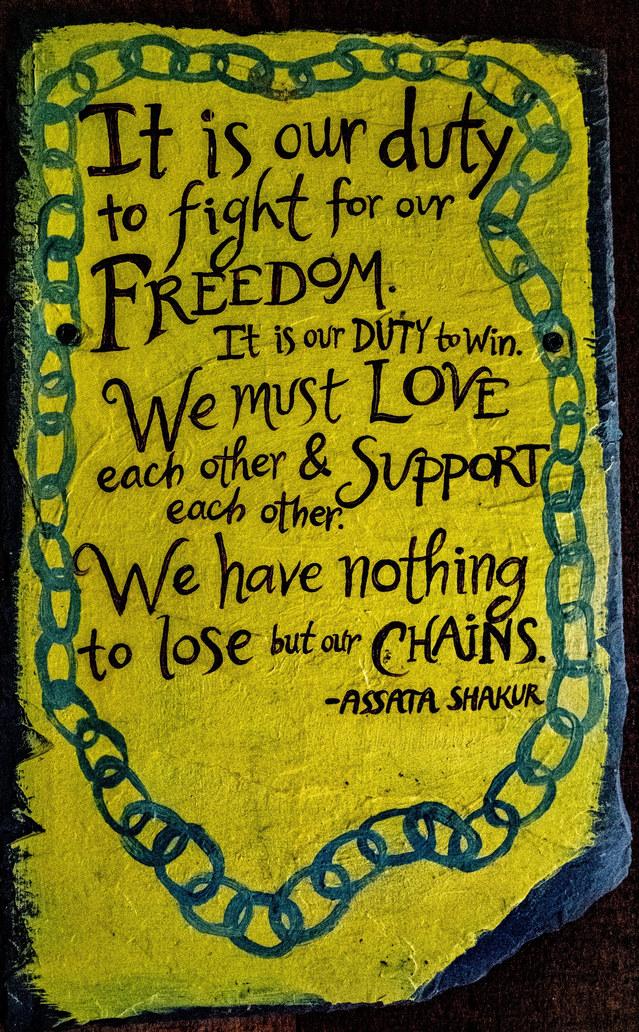 It is our duty
to fight for our
FREEDOM.
It is our DUTY to win.
We must LOVE
each other & SUPPORT
each other.
We have nothing
to lose but our CHAiNS.
-ASSATA SHAKUR